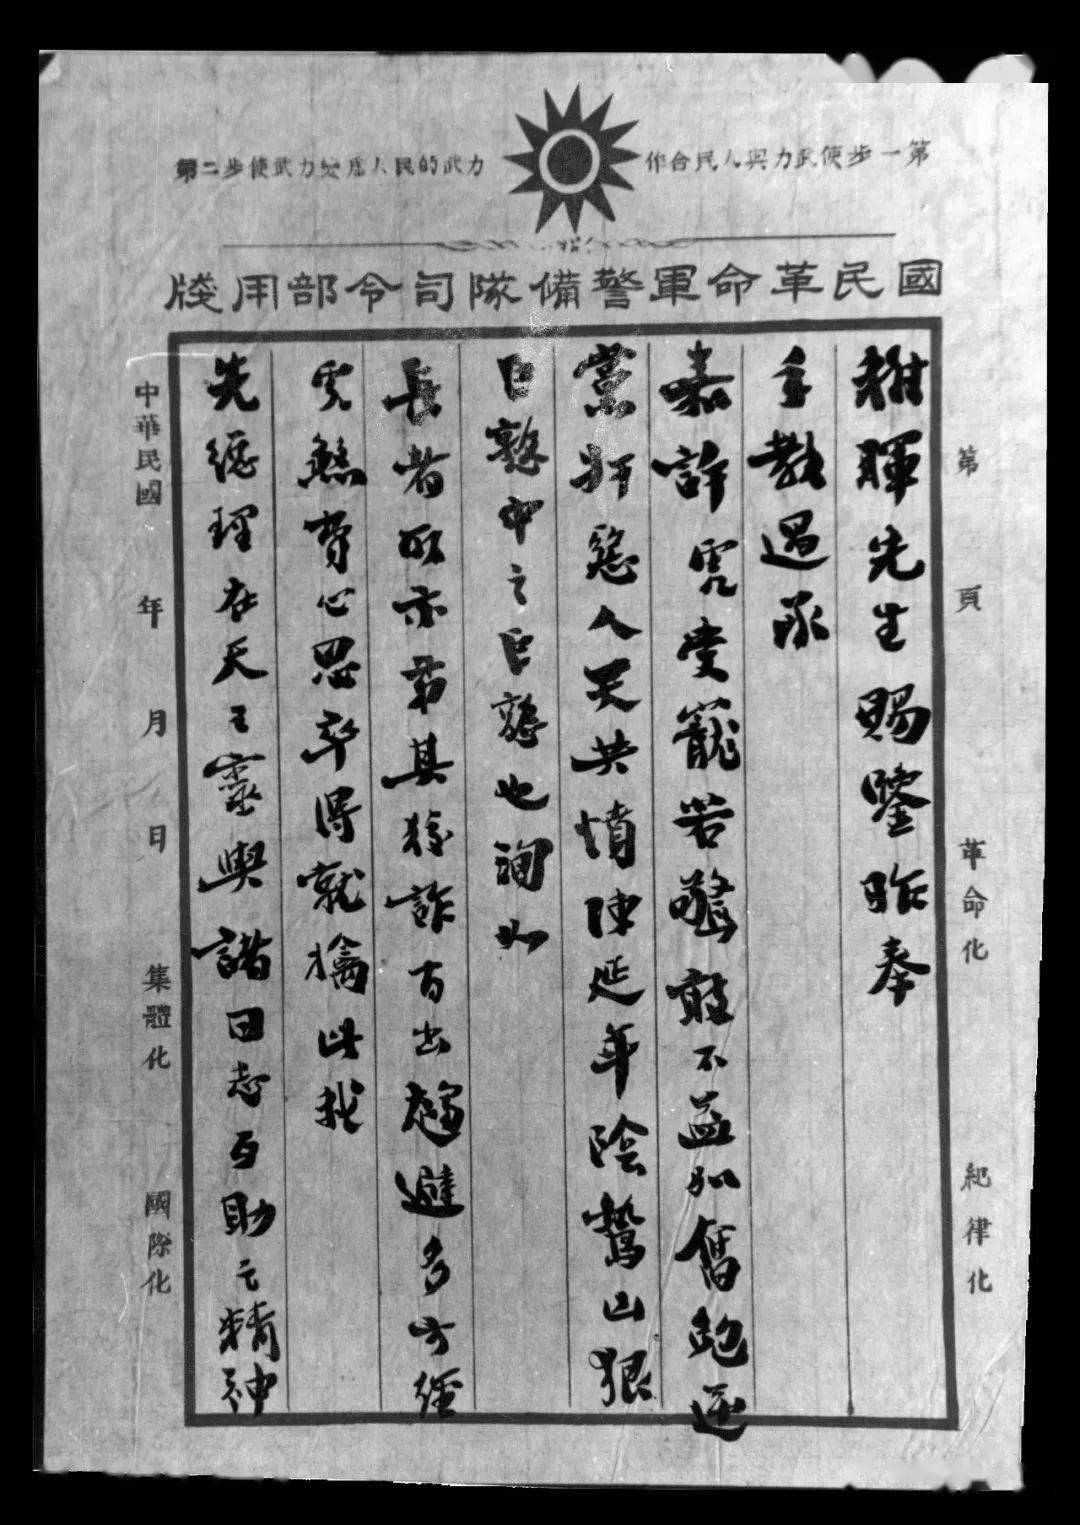 第一步使武力與人民合作
第二步使武力變為人民的武力
國民革命軍警備隊司令部用牋
第 頁
革命化
紀律化
稚暉先生賜鑒昨奉
手教過承
嘉許虎受寵若驚敢不益加奮勉逆
黨奸慝人天共憤陳延年陰鷙凶狠
巨憝中之巨憝也洵如
長者所示第其狡詐百出趨避多方經
虎煞費心思卒得就擒此我
先總理在天之靈與諸同志互助之精神
中華民國 年 月 日
集體化
國際化